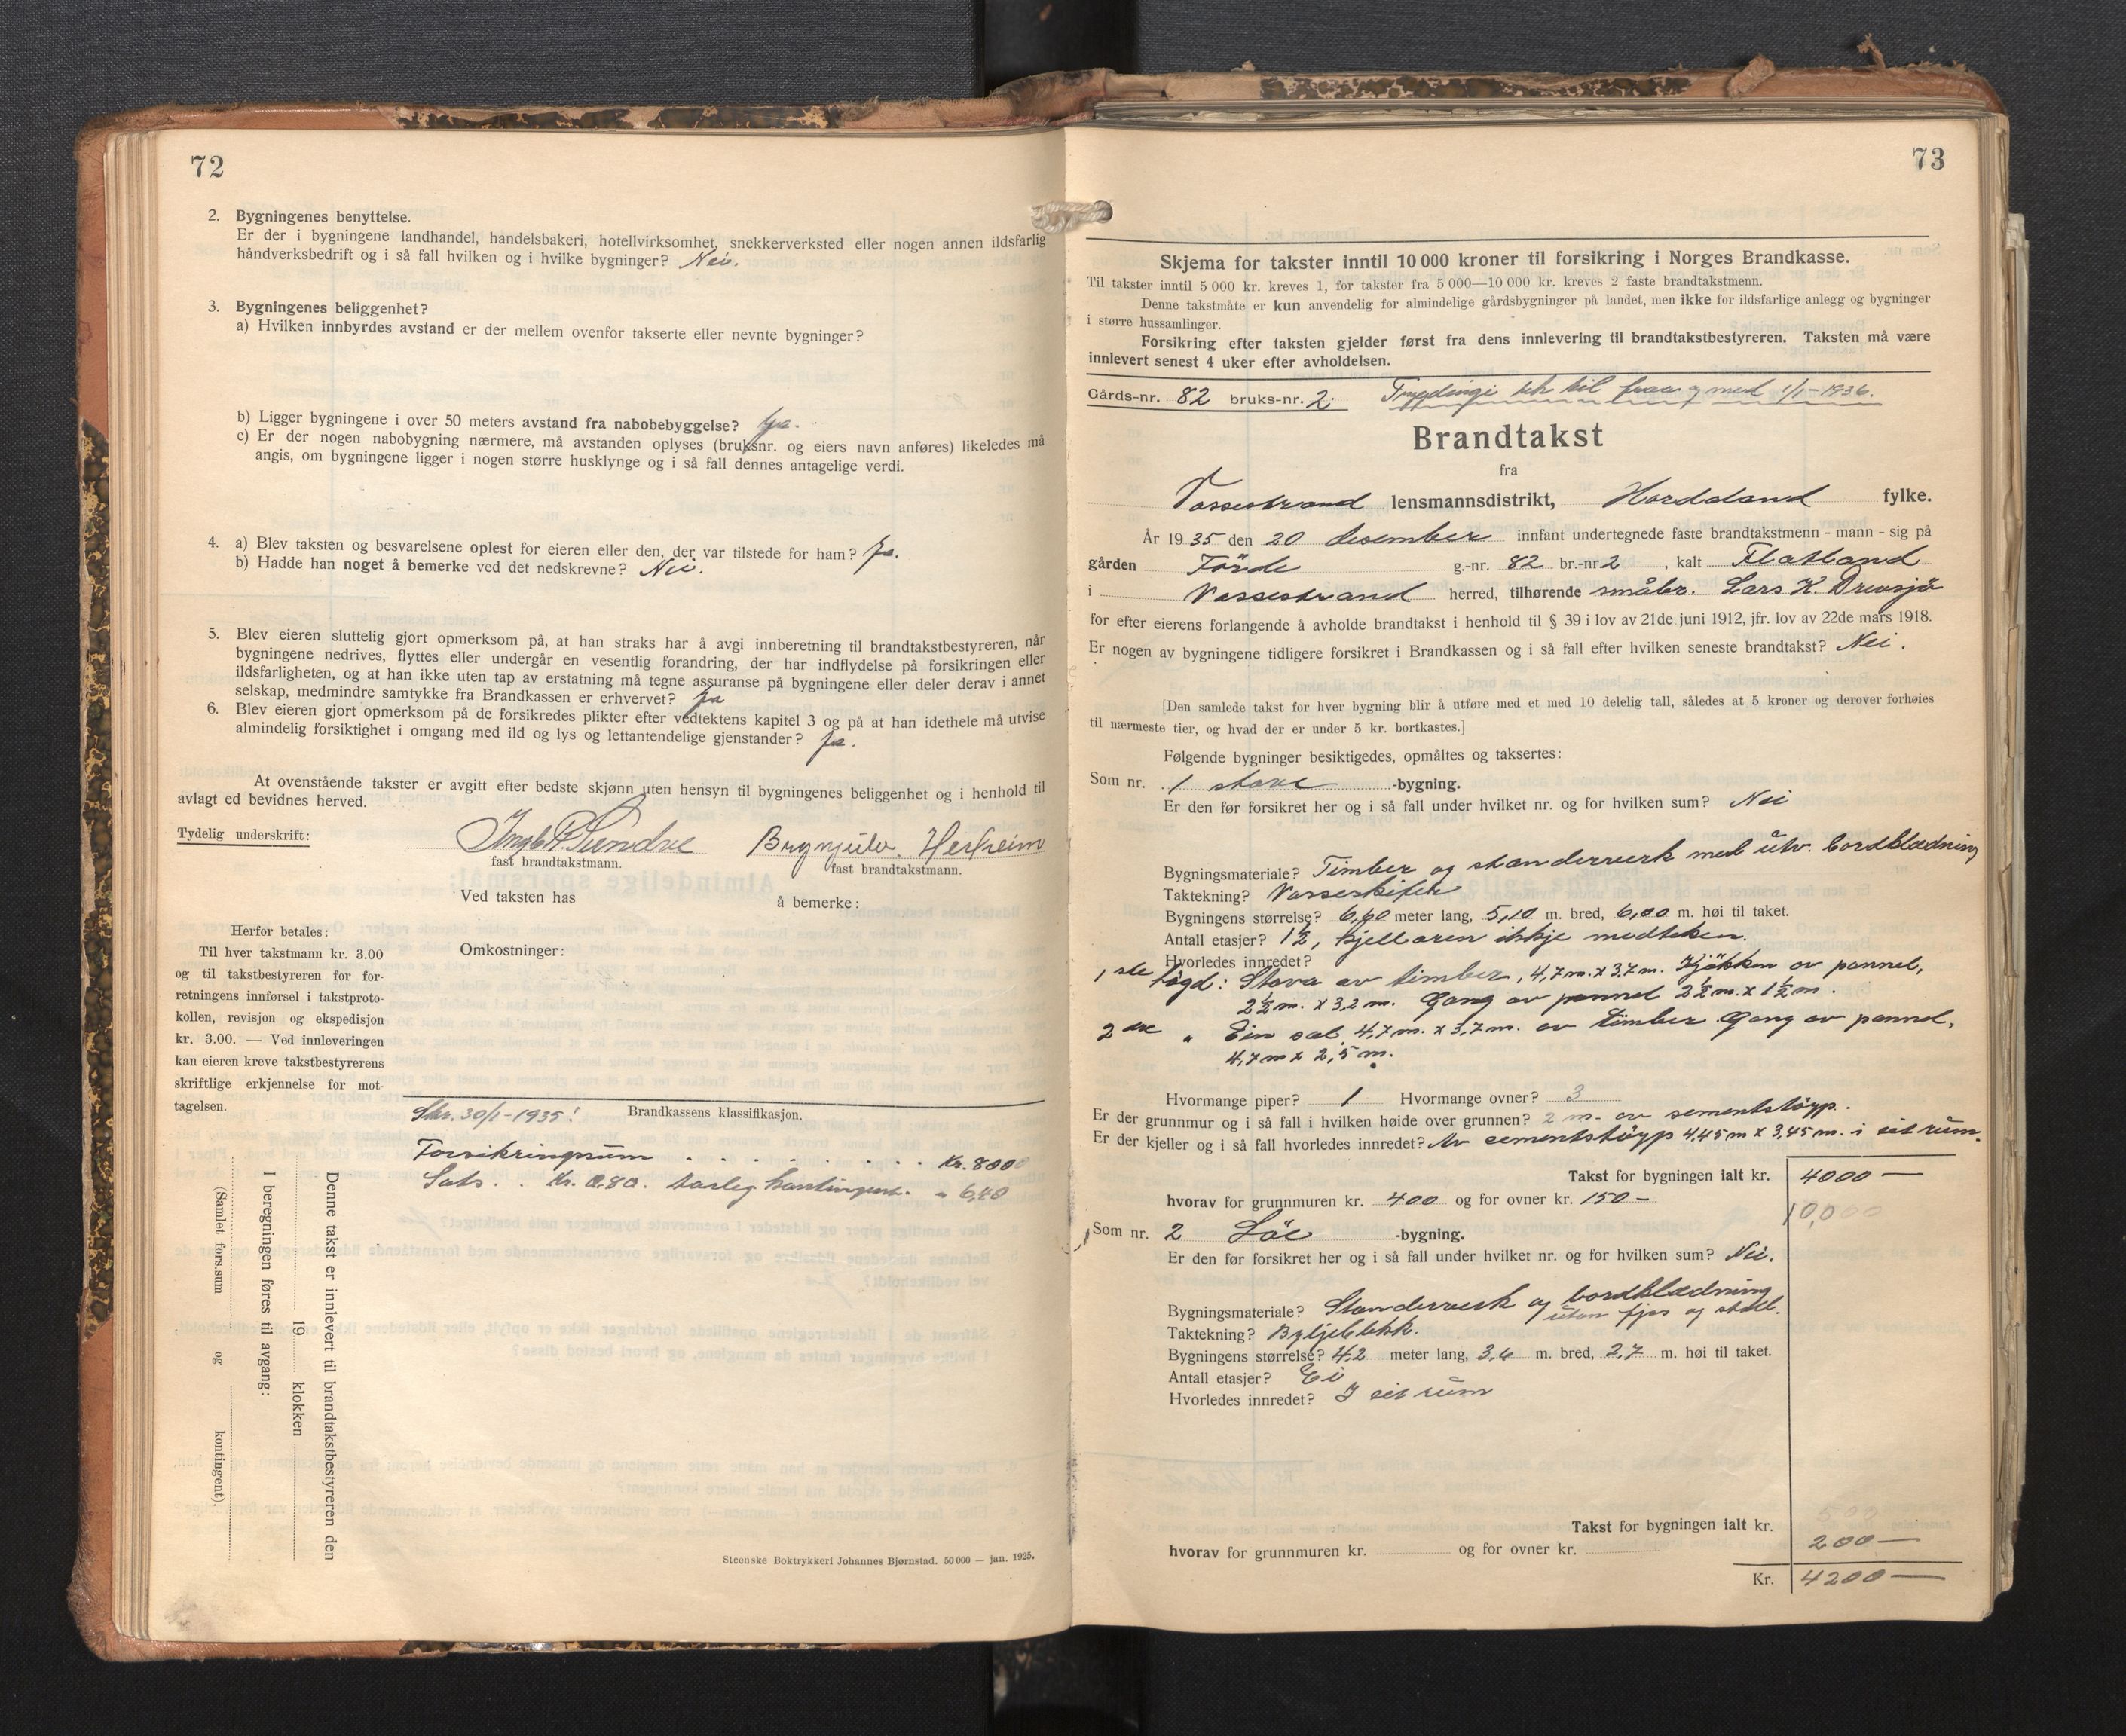 72
2. Bygningenes benyttelse.
Er der i bygningene landhandel, handelsbakeri, hotellvirksomhet, snekkerverksted eller nogen annen ildsfarlig
håndverksbedrift og i så fall hvilken og i hvilke bygninger? Nei.
3. Bygningenes beliggenhet?
a) Hvilken innbyrdes avstand er der mellem ovenfor takserte eller nevnte bygninger?
b) Ligger bygningene i over 50 meters avstand fra nabobebyggelse? Ja.
c) Er der nogen nabobygning nærmere, må avstanden oplyses (bruksnr. og eiers navn anføres) likeledes må
angis, om bygningene ligger i nogen større husklynge og i så fall dennes antagelige verdi.
4. a) Blev taksten og besvarelsene oplest for eieren eller den, der var tilstede for ham? Ja.
b) Hadde han noget å bemerke ved det nedskrevne? Nei.
5. Blev eieren sluttelig gjort opmerksom på, at han straks har å avgi innberetning til brandtakstbestyreren, når
bygningene nedrives, flyttes eller undergår en vesentlig forandring, der har indflydelse på forsikringen eller
ildsfarligheten, og at han ikke uten tap av erstatning må tegne assuranse på bygningene eller deler derav i annet
selskap, medmindre samtykke fra Brandkassen er erhvervet? Ja
6. Blev eieren gjort opmerksom på de forsikredes plikter efter vedtektens kapitel 3 og på at han idethele må utvise
almindelig forsiktighet i omgang med ild og lys og lettantendelige gjenstander? Ja.
At ovenstående takster er avgitt efter bedste skjønn uten hensyn til bygningenes beliggenhet og i henhold til
avlagt ed bevidnes herved.
Tydelig underskrift: Sundve Brynjulv Herheim
fast brandtakstmann. fast brandtakstmann.
Ved taksten has å bemerke:
Herfor betales:
Til hver takstmann kr. 3.00
og til takstbestyreren for for-
retningens innførsel i takstproto-
kollen, revisjon og ekspedisjon
kr. 3.00. — Ved innleveringen
kan eieren kreve takstbestyrerens
skriftlige erkjennelse for mot-
tagelsen.
Omkostninger:
Skr. 30/1-1935! Brandkassens klassifikasjon.
Forsikringsum . . . . . . . . . Kr. 8000
Sats . . Kr. 0.80. kontingent. " 6,40
Denne takst er innlevert til brandtakstbestyreren den
19 klokken
I beregningen føres til avgang:
(Samlet fors.sum og kontingent).
Steenske Boktrykkeri Johannes Bjørnstad. 50 000 — jan. 1925.
73
Skjema for takster inntil 10 000 kroner til forsikring i Norges Brandkasse.
Til takster inntil 5 000 kr. kreves 1, for takster fra 5 000—10 000 kr. kreves 2 faste brandtakstmenn.
Denne takstmåte er kun anvendelig for almindelige gårdsbygninger på landet, men ikke for ildsfarlige anlegg og bygninger
i større hussamlinger.
Forsikring efter taksten gjelder først fra dens innlevering til brandtakstbestyreren. Taksten må være
innlevert senest 4 uker efter avholdelsen.
Gårds-nr. 82 bruks-nr. 2. Trygdingi tek til fraa og med 1/1-1936.
Brandtakst
fra
Vossestrand lensmannsdistrikt, Hordaland fylke.
År 1935 den 20 desember innfant undertegnede faste brandtakstmenn - mann - sig på
gården Förde g.-nr. 82 br.-nr 2, kalt Flatland
i Vossestrand herred, tilhørende småbr. Lars K. Drevsjö
for efter eierens forlangende å avholde brandtakst i henhold til § 39 i lov av 21de juni 1912, jfr. lov av 22de mars 1918.
Er nogen av bygningene tidligere forsikret i Brandkassen og i så fall efter hvilken seneste brandtakst? Nei.
[Den samlede takst for hver bygning blir å utføre med et med 10 delelig tall, således at 5 kroner og derover forhøies
til nærmeste tier, og hvad der er under 5 kr. bortkastes.]
Følgende bygninger besiktigedes, opmåltes og taksertes:
Som nr. 1 stove -bygning.
Er den før forsikret her og i så fall under hvilket nr. og for hvilken sum? Nei
Bygningsmateriale? Timber og standerverk med utv. bordklædning
Taktekning? Vosseskifer
Bygningens størrelse? 6,60 meter lang, 5,10 m. bred, 6,00 m. høi til taket.
Antall etasjer? 1½, kjellaren ikkje medteken.
Hvorledes innredet?
1ste högd: Stova av timber, 4,7 m. x 3,7 m. Kjökken av pannel,
2½ m. x 3,2 m. Gang av pannel 2½ m. x 1½ m.
2dre " Ein sal 4,7 m. x 3,7 m. av timber Gang av pannel,
4,7 m x 2,5 m.
Hvormange piper? 1 Hvormange ovner? 3
Er der grunnmur og i så fall i hvilken høide over grunnen? 2 m. av sementstöyp.
Er der kjeller og i så fall hvorledes innredet? Av sementstöyp 4,45 m x 3,45 m. i eit rum.
Takst for bygningen ialt kr. 4000 —
hvorav for grunnmuren kr. 400 og for ovner kr. 150 —
10,000
Som nr. 2 Löe -bygning.
Er den før forsikret her og i så fall under hvilket nr. og for hvilken sum? Nei.
Bygningsmateriale? Standerverk og bordklædning
utan fjos og stall.
Taktekning? Bylgjeblekk.
Bygningens størrelse? 4,2 meter lang, 3,6 m. bred, 2,7 m. høi til taket.
Antall etasjer? Ei
Hvorledes innredet? I eit rum
Takst for bygningen ialt kr. 500
200 —
hvorav for grunnmuren kr. og for ovner kr.
Kr. 4200 —